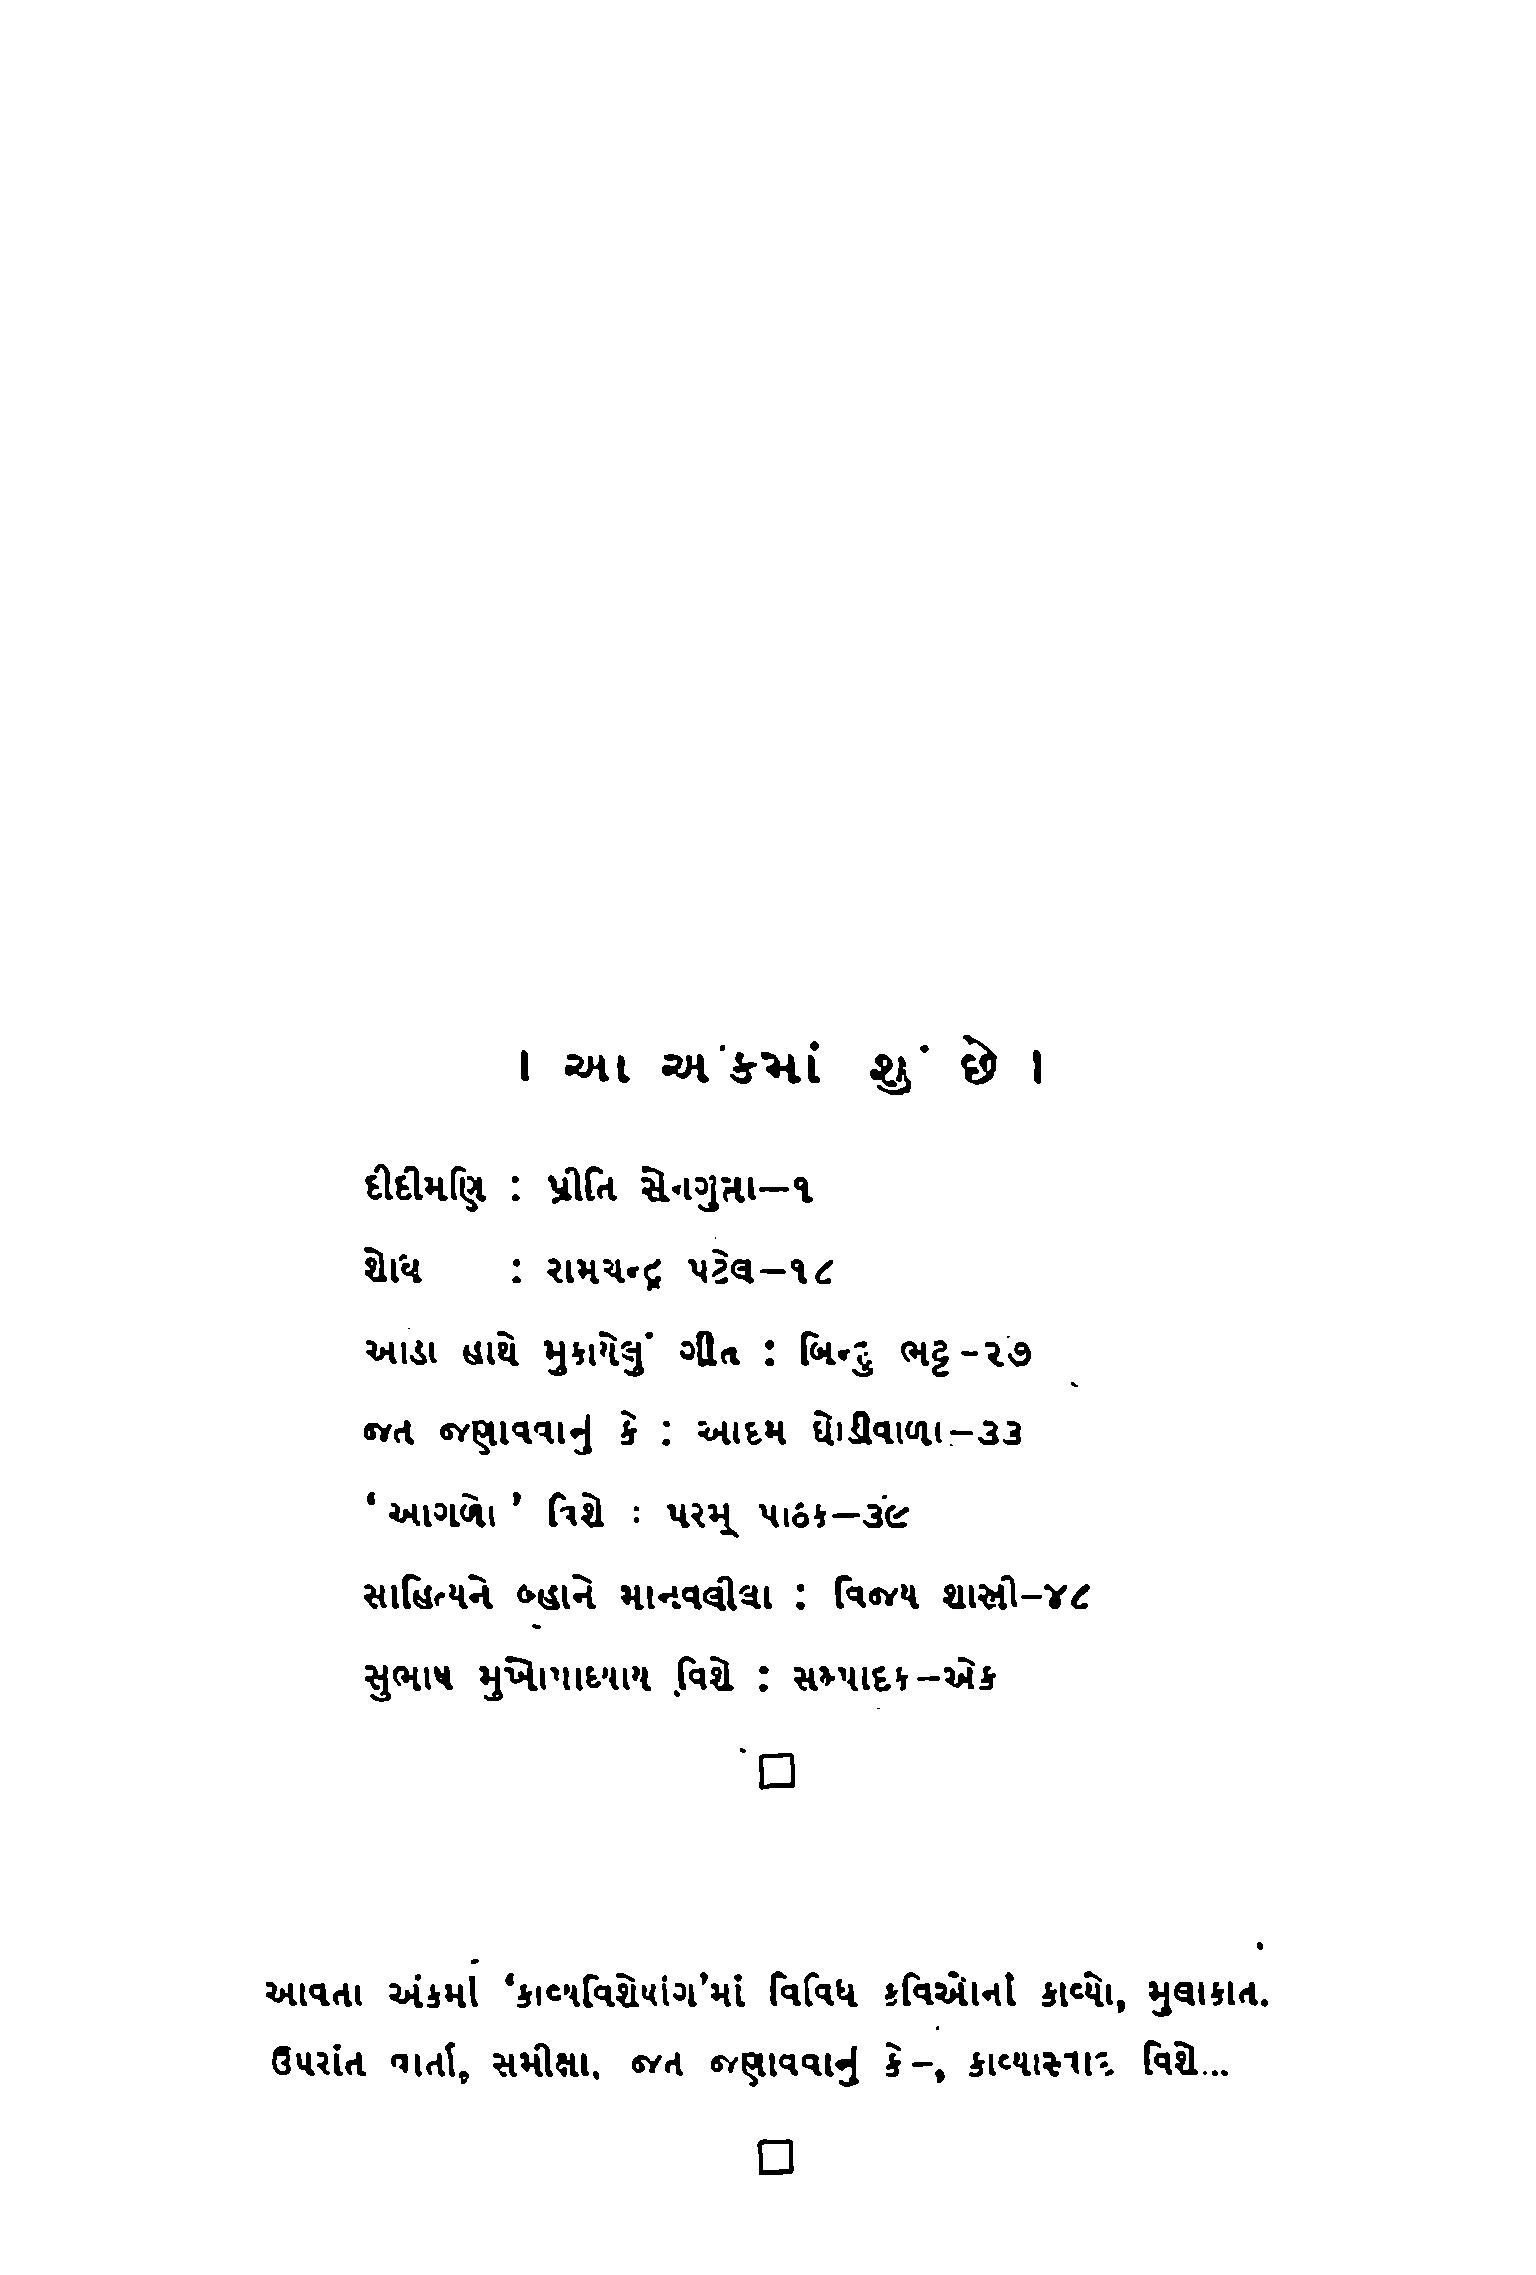 । આ અંકમાં શું છે ।
દીદીમણિ : પ્રીતિ સેનગુપ્તા–૧
શોધ : રામચન્દ્ર પટેલ–૧૮
આડા હાથે મુકાયેલું ગીત : બિન્દુ ભટ્ટ–૨૭
જત જણાવવાનું કે : આદમ ઘોડીવાળા–૩૩
‘આગળો’ વિશે : પરમ્ પાઠક–૩૯
સાહિત્યને બ્હાને માનવલીલા : વિજય શાસ્ત્રી–૪૮
સુભાષ મુખોપાધ્યાય વિશે : સમ્પાદક–એક
આવતા અંકમાં ‘કાવ્યવિશેષાંગ’માં વિવિધ કવિઓનાં કાવ્યો, મુલાકાત.
ઉપરાંત વાર્તા, સમીક્ષા, જત જણાવવાનું કે–, વિશે...